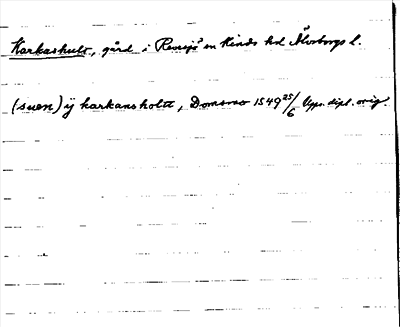 Karkashult, gård i Revesjö sn Kinds hd Älvsborgs l.
(suen) ÿ karkansholtt, Domsaao 1549 25/6 Upps. dipl. orig.